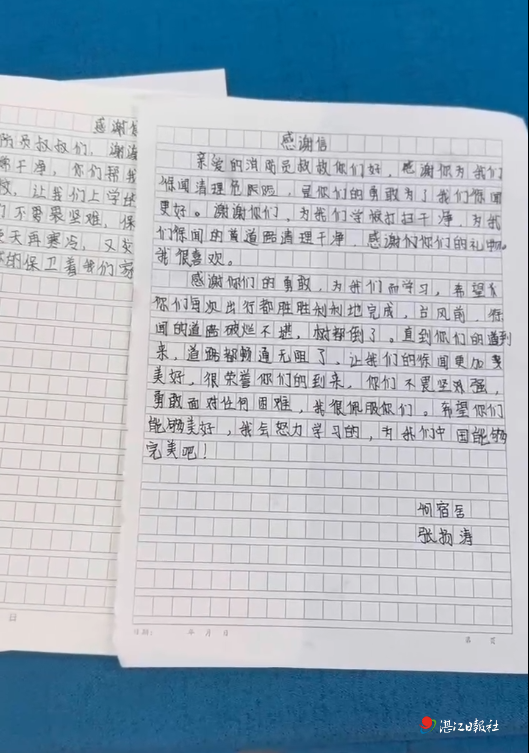 感谢信
员叔叔们，谢谢
干净，你们帮我
让我们上学
不畏艰难，保
天再寒冷，又
的保卫着我们家
感谢信
亲爱的消防员叔叔你们好，感谢你为我们
保闻清理危险，是你们的勇敢为了我们保闻
更好。谢谢你们，为我们学校打扫干净，为我
们保闻的黄道路清理干净，感谢你们的礼物。
我很喜欢。
感谢你们的勇敢，为我们而学习，希望
你们每次出行都胜胜利利地完成，台风前，保
闻的道路破烂不堪，树都倒了。直到你们的到
来，道路都畅通无阻了。让我们的保闻更加
美好，很荣誉你们的到来，你们不畏坚难强，
勇敢面对任何困难，我很佩服你们。希望你们
能够美好，我会努力学习的，为我们中国能够
完美吧！
何宿舍
张扬涛
日期： 年 月 日
第 页
日
湛江日报社